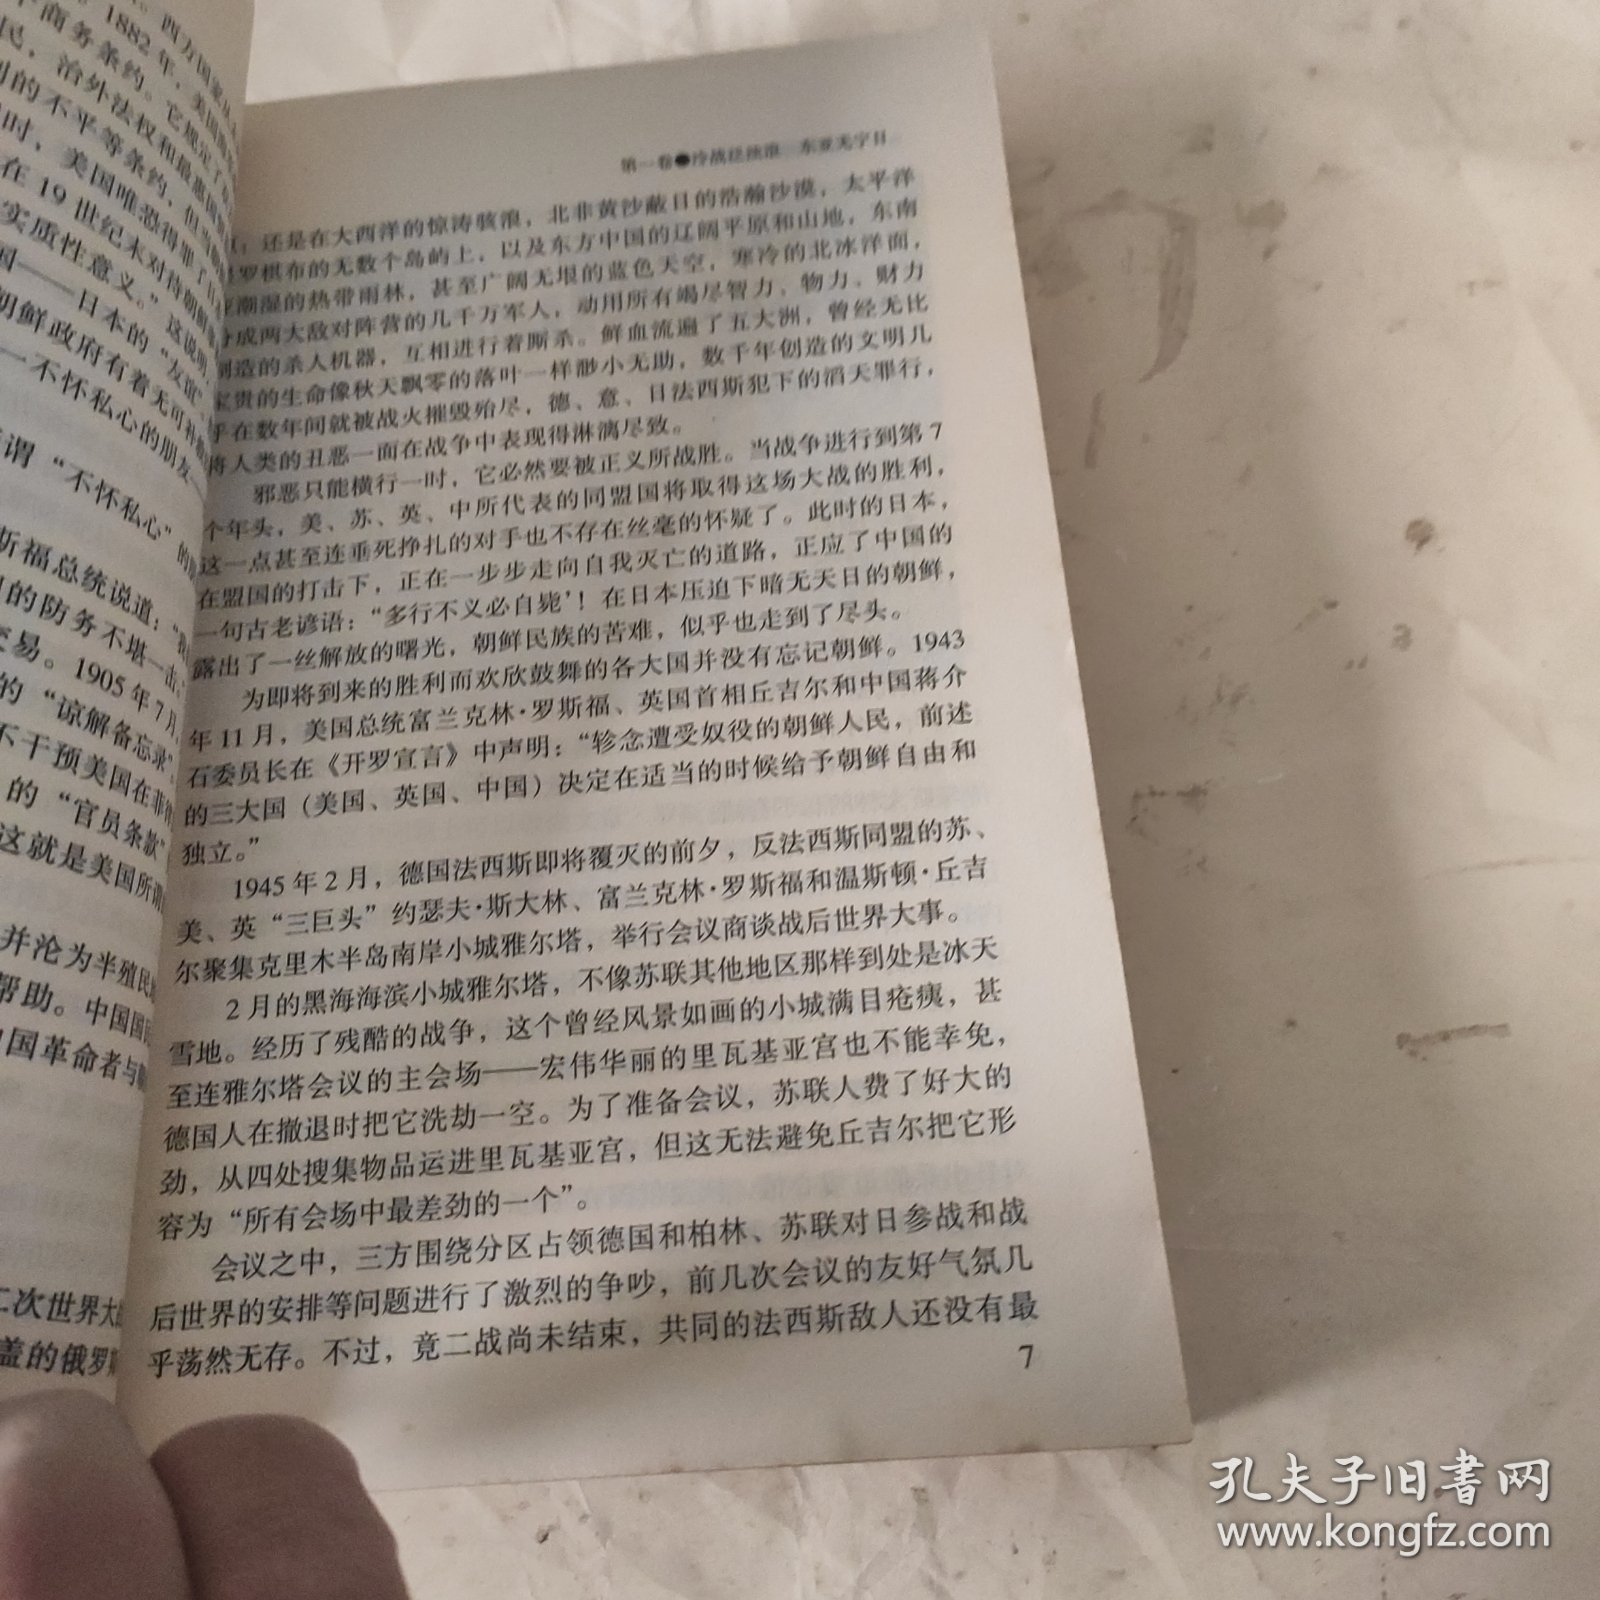 西方国家
1882年，美国
商务条约。它规定了
民，治外法权和最惠国
的不平等条约，但当
时，美国唯恐得罪了日
在19世纪末对待朝鲜
实质性意义。”这说明，
国——日本的“友谊”
朝鲜政府有着无可
一不怀私心的朋友
谓“不怀私心”的
斯福总统说道：“
的防务不堪一击。
交易。1905年7月，
的“谅解备忘录”
不干预美国在菲
的“官员条款”
这就是美国所谓
并沦为半殖民
帮助。中国国
国革命者与
二次世界大
盖的俄罗
第一卷●冷战 东亚无宁日
还是在大西洋的惊涛骇浪，北非黄沙蔽日的浩瀚沙漠，太平洋
罗棋布的无数个岛屿上，以及东方中国的辽阔平原和山地，东南
潮湿的热带雨林，甚至广阔无垠的蓝色天空，寒冷的北冰洋面，
成两大敌对阵营的几千万军人，动用所有竭尽智力、物力、财力
制造的杀人机器，互相进行着厮杀。鲜血流遍了五大洲，曾经无比
宝贵的生命像秋天飘零的落叶一样渺小无助，数千年创造的文明几
乎在数年间就被战火摧毁殆尽，德、意、日法西斯犯下的滔天罪行，
将人类的丑恶一面在战争中表现得淋漓尽致。
邪恶只能横行一时，它必然要被正义所战胜。当战争进行到第7
个年头，美、苏、英、中所代表的同盟国将取得这场大战的胜利，
这一点甚至连垂死挣扎的对手也不存在丝毫的怀疑了。此时的日本，
在盟国的打击下，正在一步步走向自我灭亡的道路，正应了中国的
一句古老谚语：“多行不义必自毙’！在日本压迫下暗无天日的朝鲜，
露出了一丝解放的曙光，朝鲜民族的苦难，似乎也走到了尽头。
为即将到来的胜利而欢欣鼓舞的各大国并没有忘记朝鲜。1943
年11月，美国总统富兰克林·罗斯福、英国首相丘吉尔和中国蒋介
石委员长在《开罗宣言》中声明：“轸念遭受奴役的朝鲜人民，前述
的三大国（美国、英国、中国）决定在适当的时候给予朝鲜自由和
独立。”
1945年2月，德国法西斯即将覆灭的前夕，反法西斯同盟的苏、
美、英“三巨头”约瑟夫·斯大林、富兰克林·罗斯福和温斯顿·丘吉
尔聚集克里木半岛南岸小城雅尔塔，举行会议商谈战后世界大事。
2月的黑海海滨小城雅尔塔，不像苏联其他地区那样到处是冰天
雪地。经历了残酷的战争，这个曾经风景如画的小城满目疮痍，甚
至连雅尔塔会议的主会场——宏伟华丽的里瓦基亚宫也不能幸免，
德国人在撤退时把它洗劫一空。为了准备会议，苏联人费了好大的
劲，从四处搜集物品运进里瓦基亚宫，但这无法避免丘吉尔把它形
容为“所有会场中最差劲的一个”。
会议之中，三方围绕分区占领德国和柏林、苏联对日参战和战
后世界的安排等问题进行了激烈的争吵，前几次会议的友好气氛几
乎荡然无存。不过，竟二战尚未结束，共同的法西斯敌人还没有最
7
孔夫子旧书网
www.kongfz.com